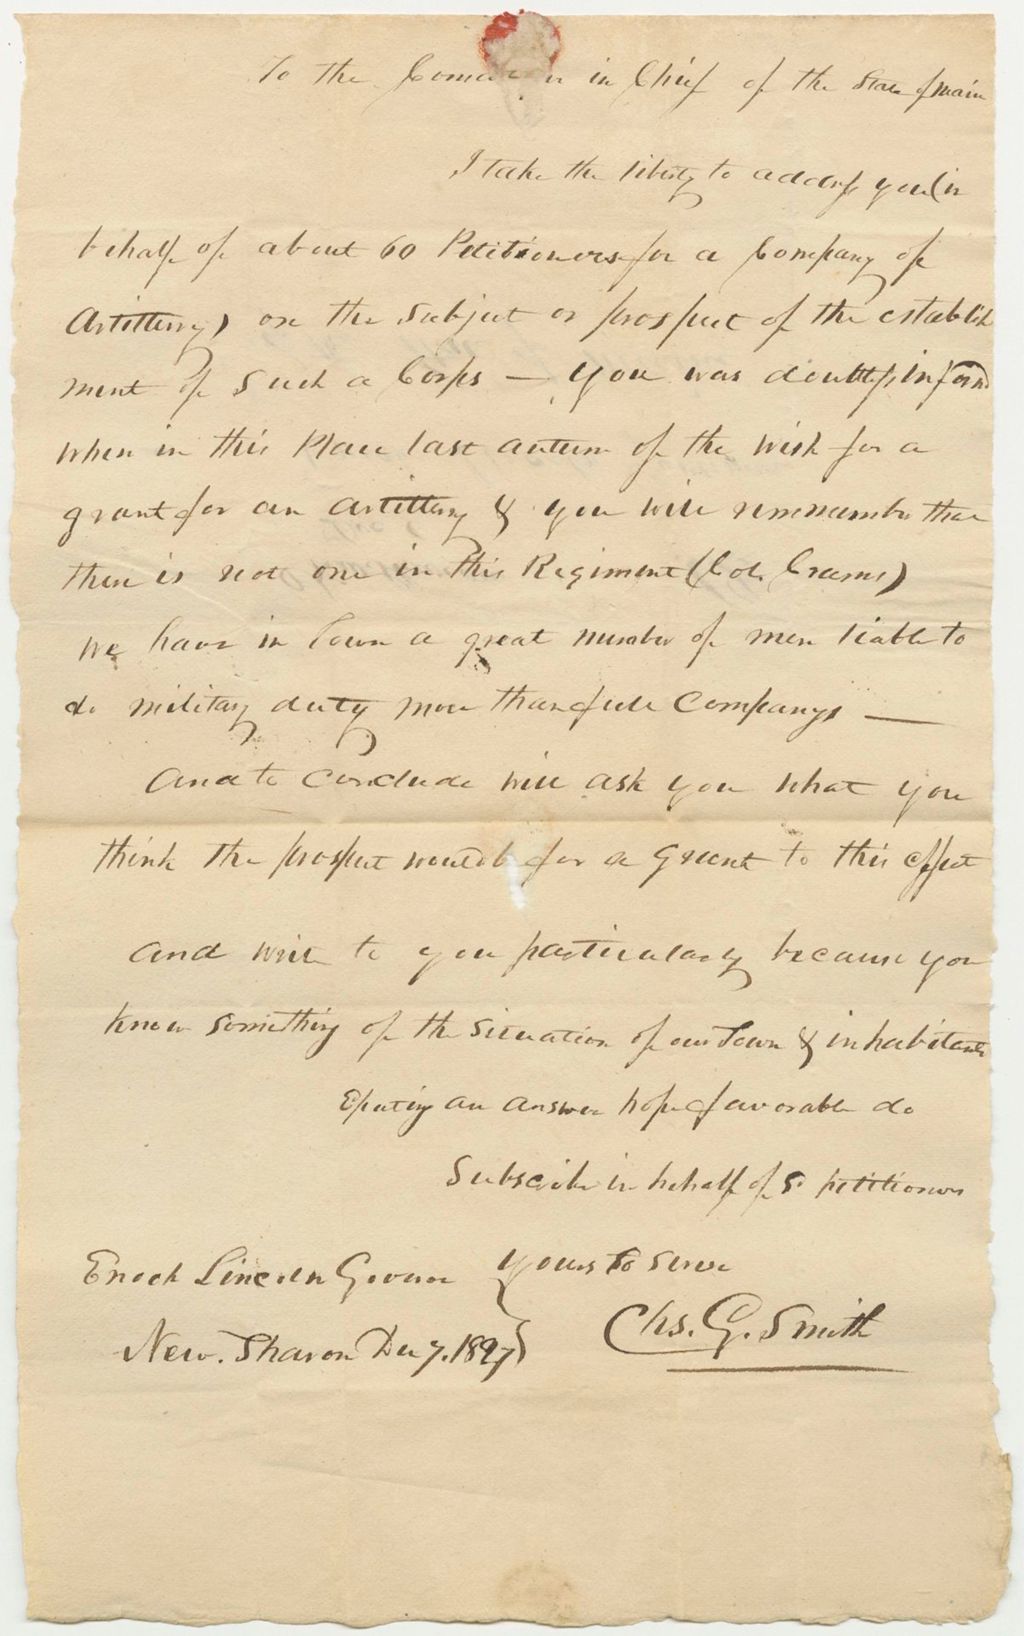 To the Coma in Chief of the State of Main
I take the liberty to address you (in
behalf of about 60 Petitioners for a Company of
Artillery) on the subject or prospect of the establish
ment of such a Corps — you was doubtless informd
when in this Place last autum of the wish for a
grant for an artillery & you will rememmber that
there is not one in this Regiment (Col. Crams)
we have in Town a great number of men liable to
do military duty more than full Companys —
And to conclude will ask you what you
think the prospect would b for a Grant to this effect
and write to you particularly because you
know something of the situation of our Town & inhabitants
Expecting an answer hope favorable do
Subscribe in behalf of sd petitioners
Enoch Lincoln Govenor } yours to serve
New. Sharon Dec 7. 1827 } Chs. G. Smith